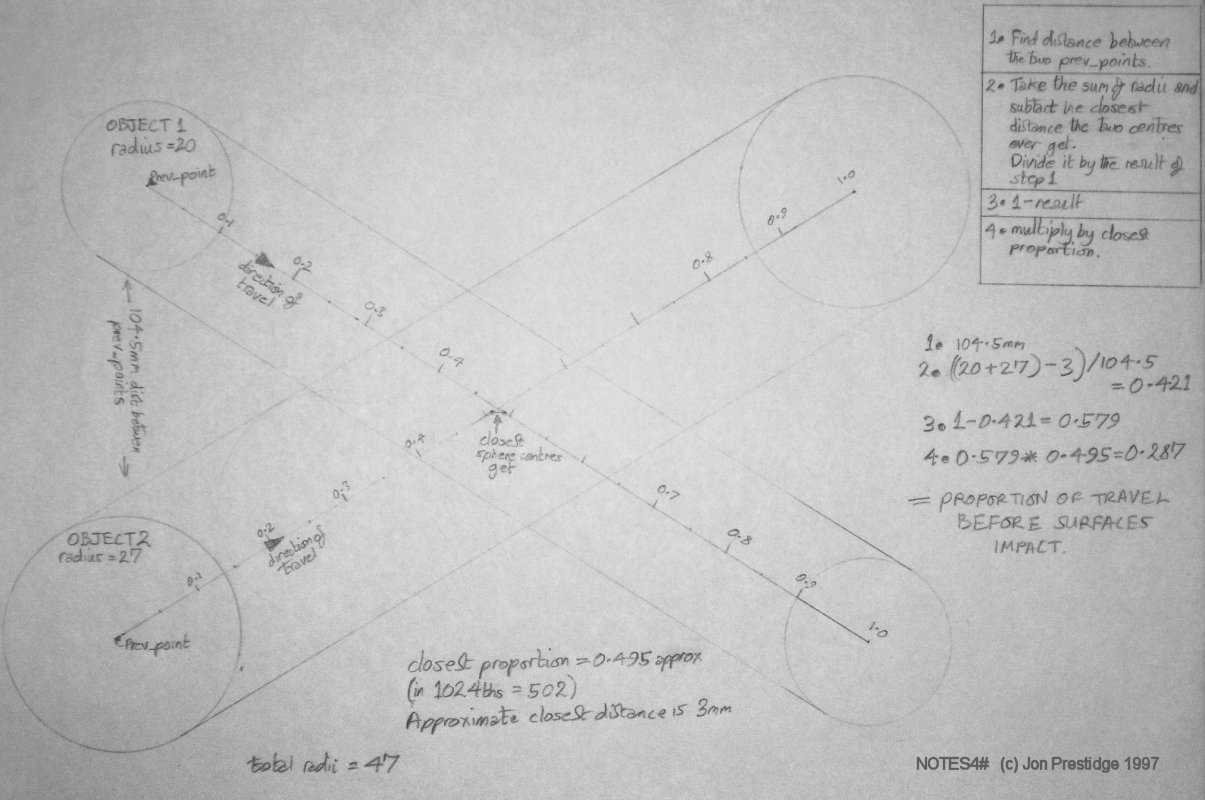 1. Find distance between
the two prev_points.
2. Take the sum of radii and
subtact the closest
distance the two centres
ever get.
Divide it by the result of
step 1
3. 1-result
4. multiply by closest
proportion.
OBJECT 1
radius = 20
Prev_point
0.1
0.2
0.3
0.4
0.7
0.8
0.9
1.0
direction of
travel
104.5mm dist between
prev_points
closest
sphere centres
get
OBJECT 2
radius = 27
Prev_point
0.1
0.2
0.3
0.4
0.8
0.9
1.0
direction of
travel
1. 104.5mm
2. ((20+27)-3)/104.5
= 0.421
3. 1-0.421 = 0.579
4. 0.579* 0.495=0.287
= PROPORTION OF TRAVEL
BEFORE SURFACES
IMPACT.
closest proportion = 0.495 approx
(in 1024ths = 502)
Approximate closest distance is 3mm
total radii = 47
NOTES4# (c) Jon Prestidge 1997